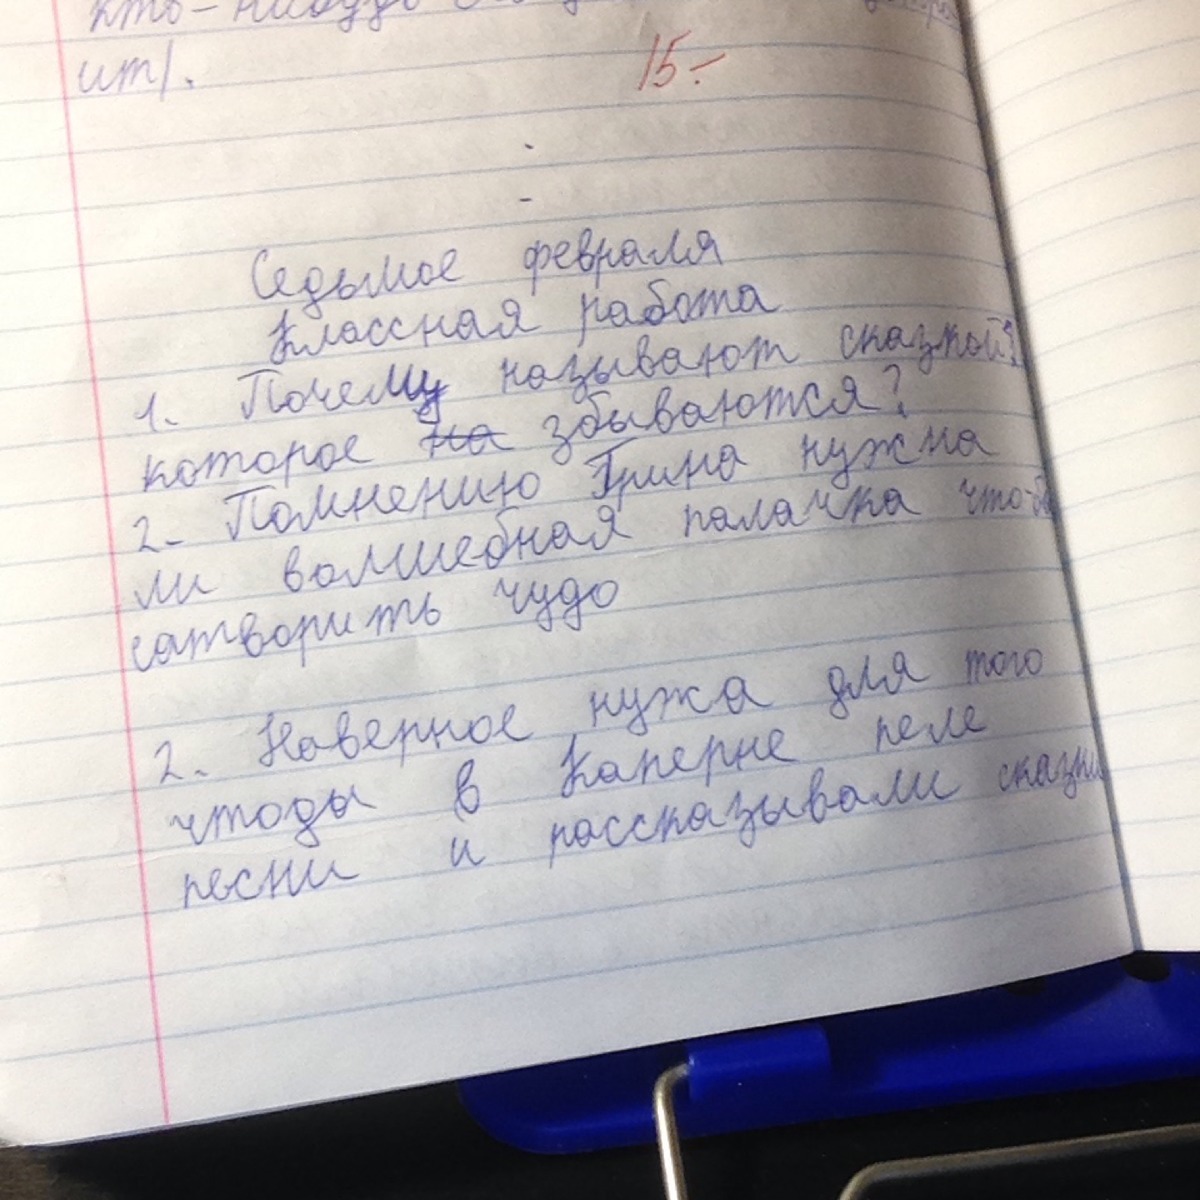 кто-нибудь
ит/.
15-
Седьмое февраля
Классная работа
1. Почему называют сказкой?
которое на збываются?
2. Помнению Грина нужна
ли волшебная палачка что-бы
сатворить чудо
2. Наверное нужа для того
чтоды в Каперне пеле
песни и рассказывали сказки